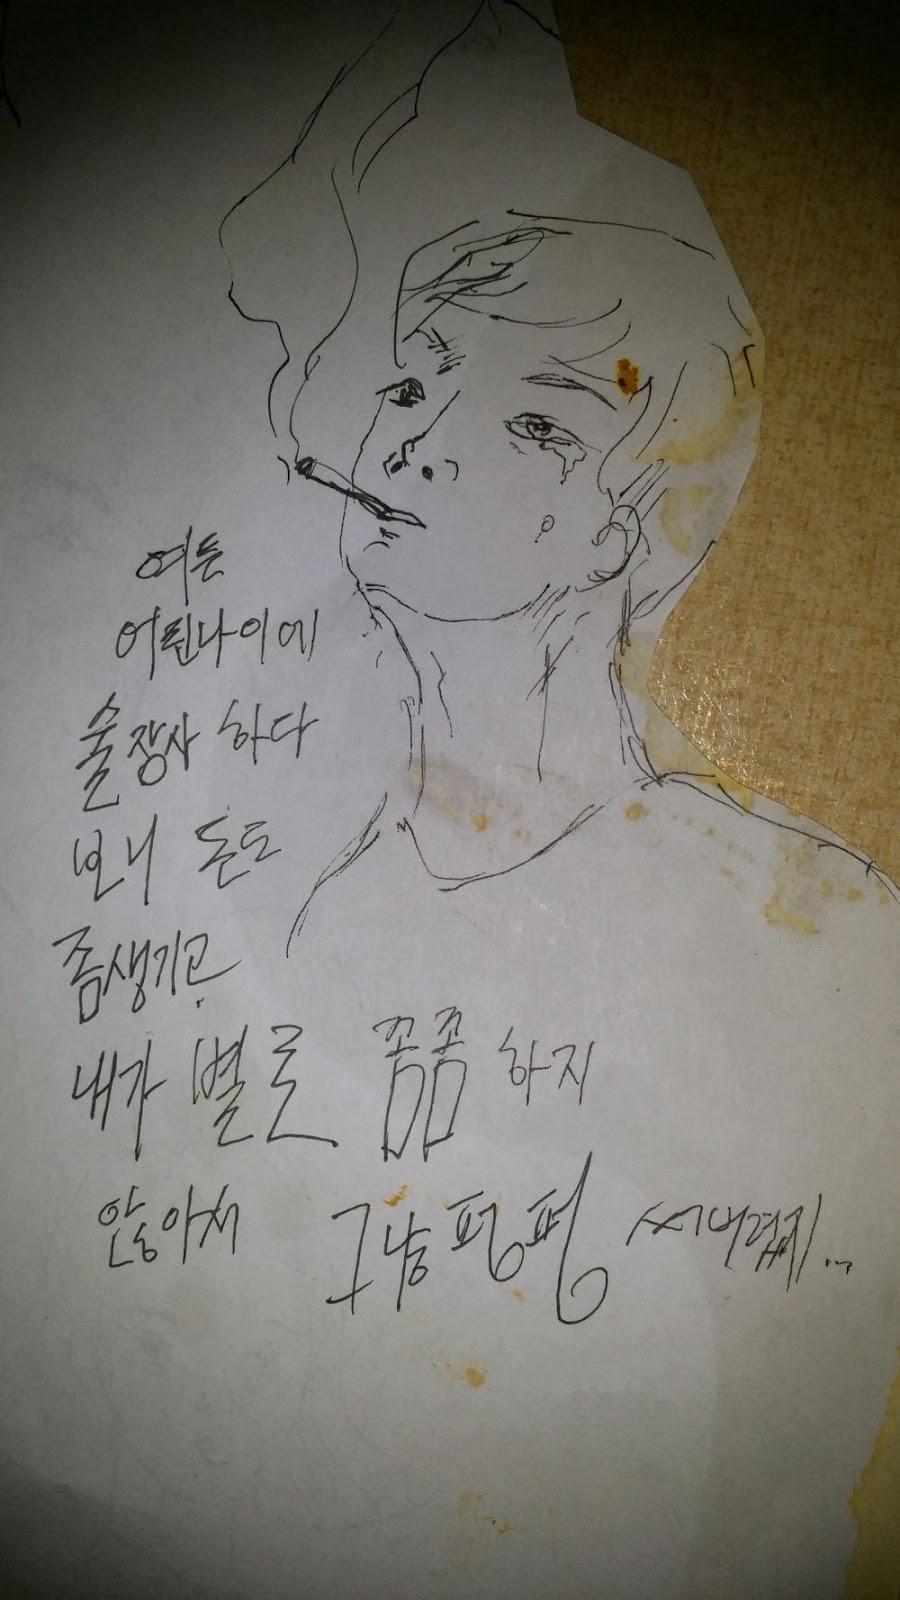 여튼
어린나이에
술장사 하다
보니 돈도
좀생기고
내가 별로 꼼꼼하지
않아서 그냥 펑펑